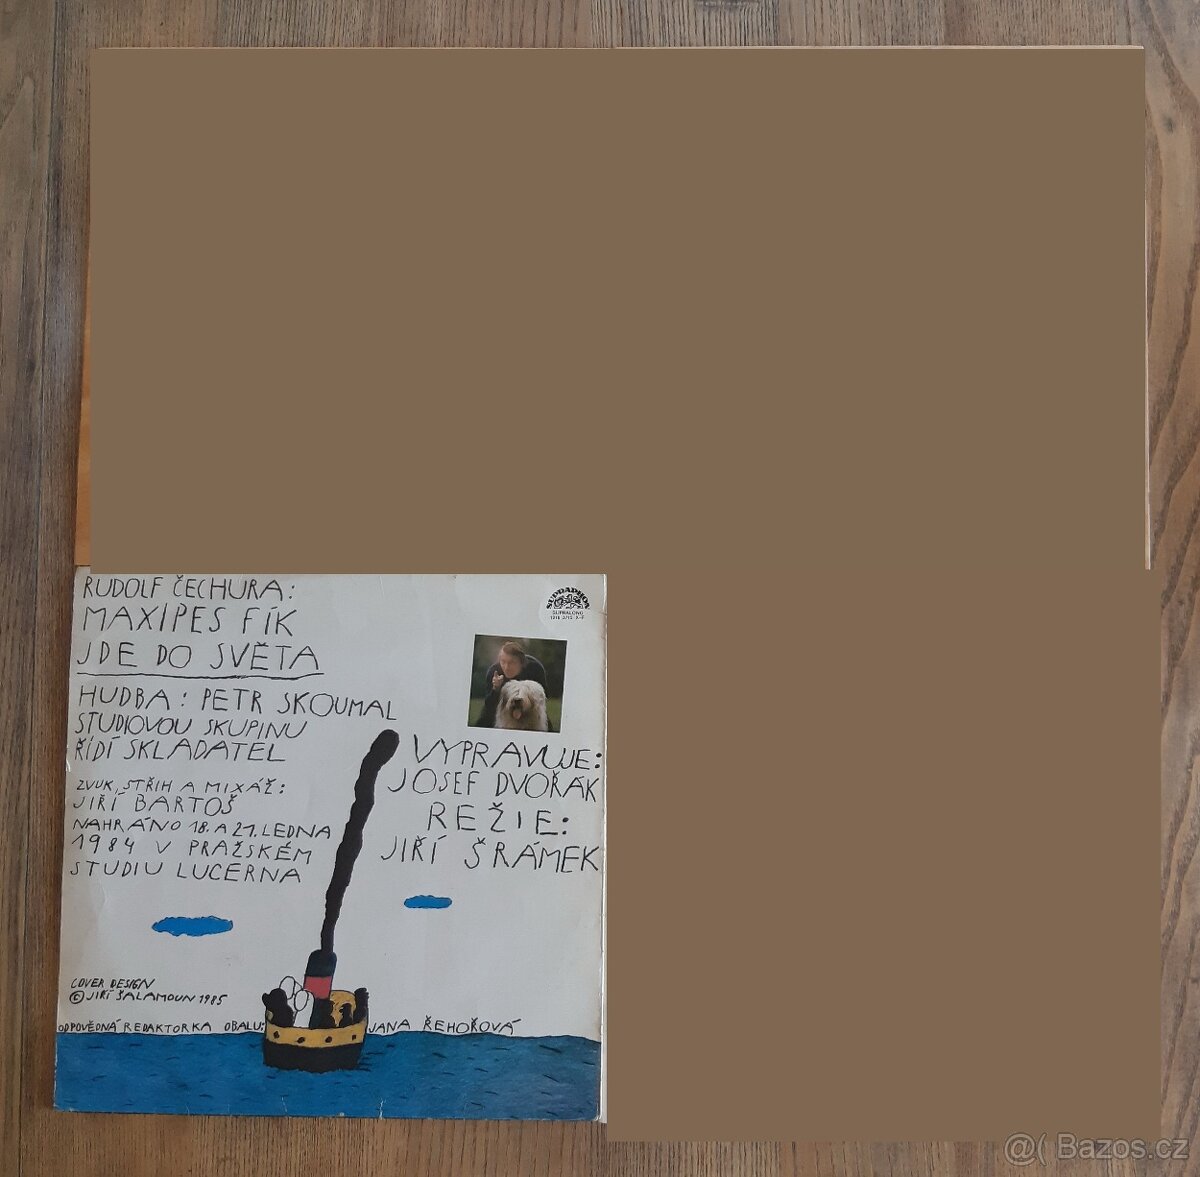 RUDOLF ČECHURA:
MAXIPES FÍK
JDE DO SVĚTA
HUDBA: PETR SKOUMAL
STUDIOVOU SKUPINU
ŘÍDÍ SKLADATEL
ZVUK, STŘIH A MIXÁŽ:
JIŘÍ BARTOŠ
NAHRÁNO 18. A 21. LEDNA
1984 V PRAŽSKÉM
STUDIU LUCERNA
SUPRAPHON
SUPRALONG
VYPRAVUJE:
JOSEF DVOŘÁK
REŽIE:
JIŘÍ ŠRÁMEK
COVER DESIGN
© JIŘÍ ŠALAMOUN 1985
ODPOVĚDNÁ REDAKTORKA OBALU: JANA ŘEHOŘOVÁ
@( Bazos.cz